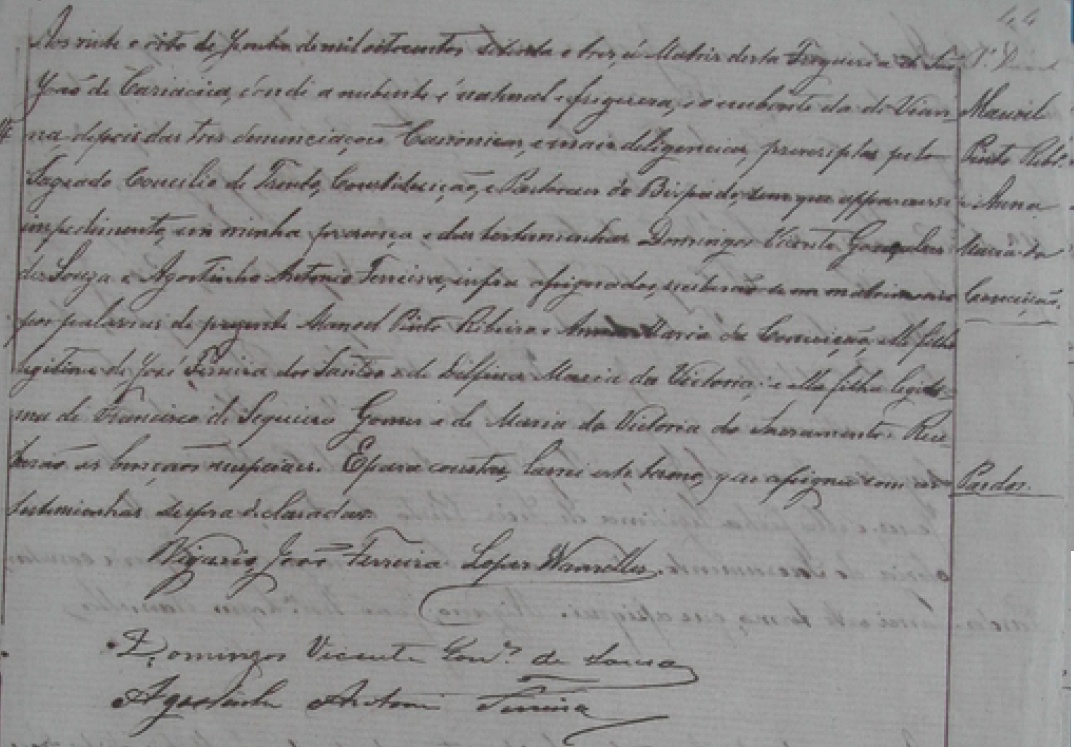 44
Aos vinte e oito de Junho de mil oitocentos setenta e tres, á Matriz desta Freguezia de São
João de Cariacica, d'onde a nubente é natural e fregueza, e o nubente da de Vian-
na, depois das tres denunciações Canonicas, e mais diligencias, prescriptas pelo
Sagrado Concilio de Trento, Constituição, e Pastoraes do Bispado, sem que apparecesse
impedimento, em minha presença e das testemunhas Domingos Vicente Gonçalves
de Souza e Agostinho Antonio Ferreira, infra assignados, receberão-se em matrimonio
por palavras de presente Manoel Pinto Ribeiro e Anna Maria da Conceição, elle filho
legitimo de José Ferreira dos Santos e de Delfina Maria da Victoria; e ella filha legiti-
ma de Francisco de Sequeira Gomes e de Maria da Victoria do Sacramento. Rece-
berão as bençaões nupciaes. E para constar, lavrei este termo, que assignei com as
testemunhas supra declaradas.
Vigario João Ferreira Lopes Wanzeller.
Domingos Vicente Gonc.^s de Souza
Agostinho Antonio Ferreira
Manoel
Pinto Ribr.º
e Anna
Maria da
Conceição.
Pardos.